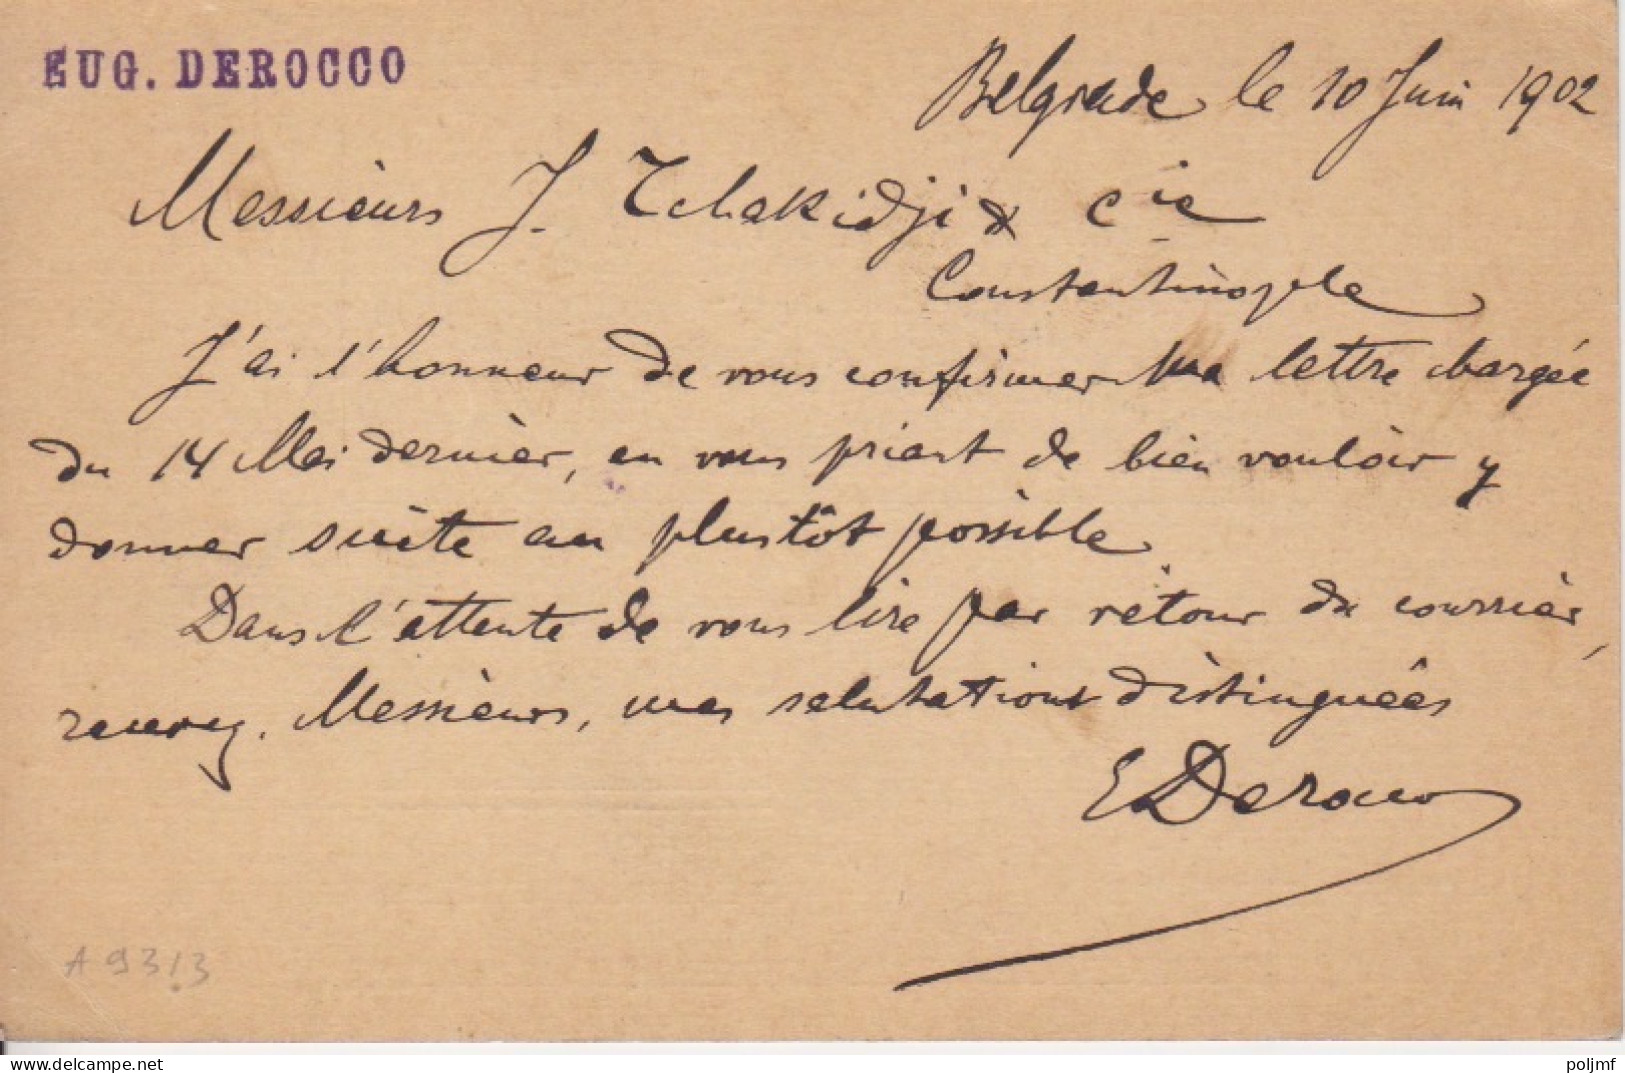 EUG. DEROCCO
Belgrade le 10 Juin 1902
Messieurs J. Tchakidji & Cie
Constantinople
J'ai l'honneur de vous confirmer ma lettre chargée
du 14 Mai dernier, en vous priant de bien vouloir y
donner suite au plustôt possible
Dans l'attente de vous lire par retour du courrier,
recevez, Messieurs, mes salutations distinguées
E Derocco
A 9313
delcampe.net
poljmf